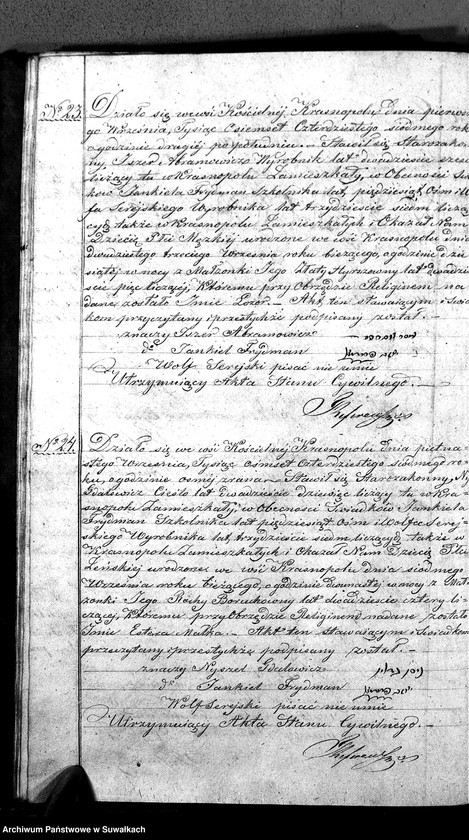 No 23. Działo się we wsi Kościelnej Krasnopolu dnia pierwsze-
go Września, Tysiąc Ośmset Czterdziestego siódmego roku
o godzinie drugiej po południu. – Stawił się Starozakon-
ny, Iszer Abramowicz Wyrobnik lat dwadzieścia sześć
liczący tu w Krasnopolu Zamieszkały, w Obecności Świad-
ków Jankiela Frydman Szkolnika lat pięćdziesiąt Ośm i Wol-
fa Serejskiego Wyrobnika lat trzydzieście siedm liczą-
cych także w Krasnopolu Zamieszkałych i Okazał Nam
Dziecię Płci Męzkiej urodzone we wsi Krasnopolu dnia
dwudziestego trzeciego Września roku bieżącego, o godzinie dzie-
siątej w nocy z Małżonki Jego Złaty lat dwadzie-
ście pięć liczącej, Któremu przy Obrządzie Religijnem na-
dane zostało Imie Lezor – Akt ten stawającym i Świad-
kom przeczytany i przez tychże podpisany został. –
znaczy Iszer Abramowicz
dto Jankiel Frydman
Wolf Serejski pisać nie umie
Utrzymujący Akta Stanu Cywilnego. –
No 24. Działo się we wsi Kościelnej Krasnopolu dnia piętna-
stego Września, Tysiąc ośmset Czterdziestego siódmego ro-
ku, o godzinie osmej zrana. – Stawił się Starozakonny, Ny
Gdalewicz Cieśla lat dwadzieścia dziewięć liczący tu w Kra-
snopolu Zamieszkały, w Obecności Świadków Jankiela
Frydman Szkolnika lat pięćdziesiąt Ośm i Wolfa Serej-
skiego Wyrobnika lat trzydzieście siedm liczących także w
Krasnopolu Zamieszkałych i Okazał Nam Dziecię Płci
Żeńskiej urodzone we wsi Krasnopolu dnia siódmego
Września roku bieżącego, o godzinie dwunastej w nocy z Mał-
żonki Jego Rochy Boruchowny lat dwadzieścia cztery li-
czącej, Któremu przy Obrządzie Religijnem nadane zostało
Imie Estera Malka. – Akt ten stawającym i Świadkom
przeczytany i przez tychże podpisany został. –
znaczy Nyszel Gdalowicz
dto Jankiel Frydman
Wolf Serejski pisać nie umie
Utrzymujący Akta Stanu Cywilnego. –
Archiwum Państwowe w Suwałkach